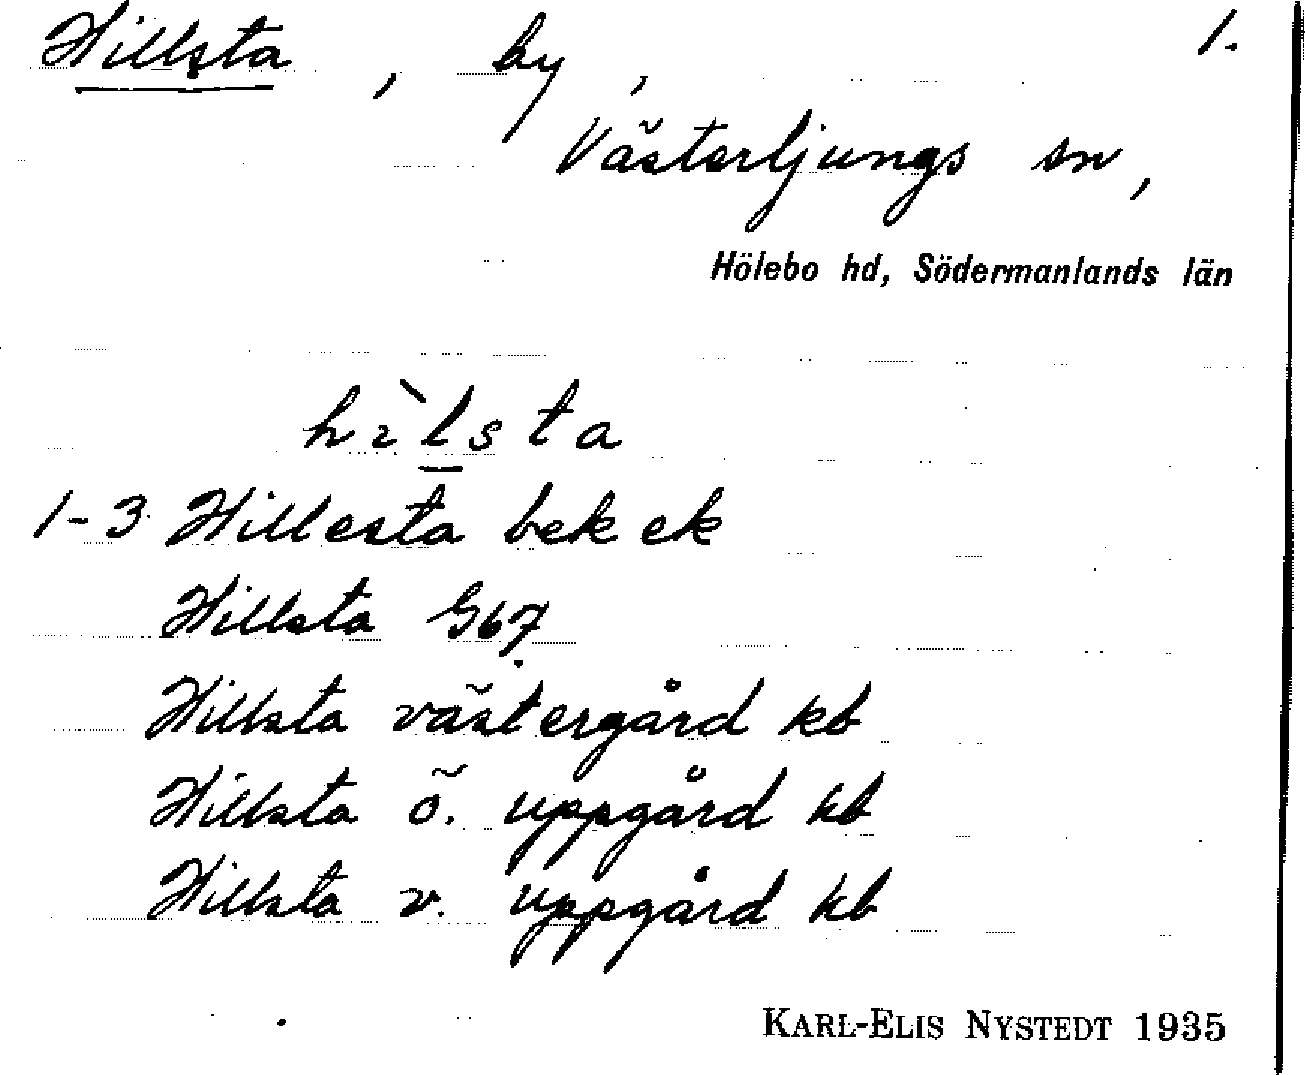 Hillsta, by, 1.
Västerljungs sn,
Hölebo hd, Södermanlands län
hìlsta
1-3 Hillesta bek ek
Hillsta G67
Hillsta västergård kb
Hillsta ö. uppgård kb
Hillsta v. uppgård kb
KARL-ELIS NYSTEDT 1935